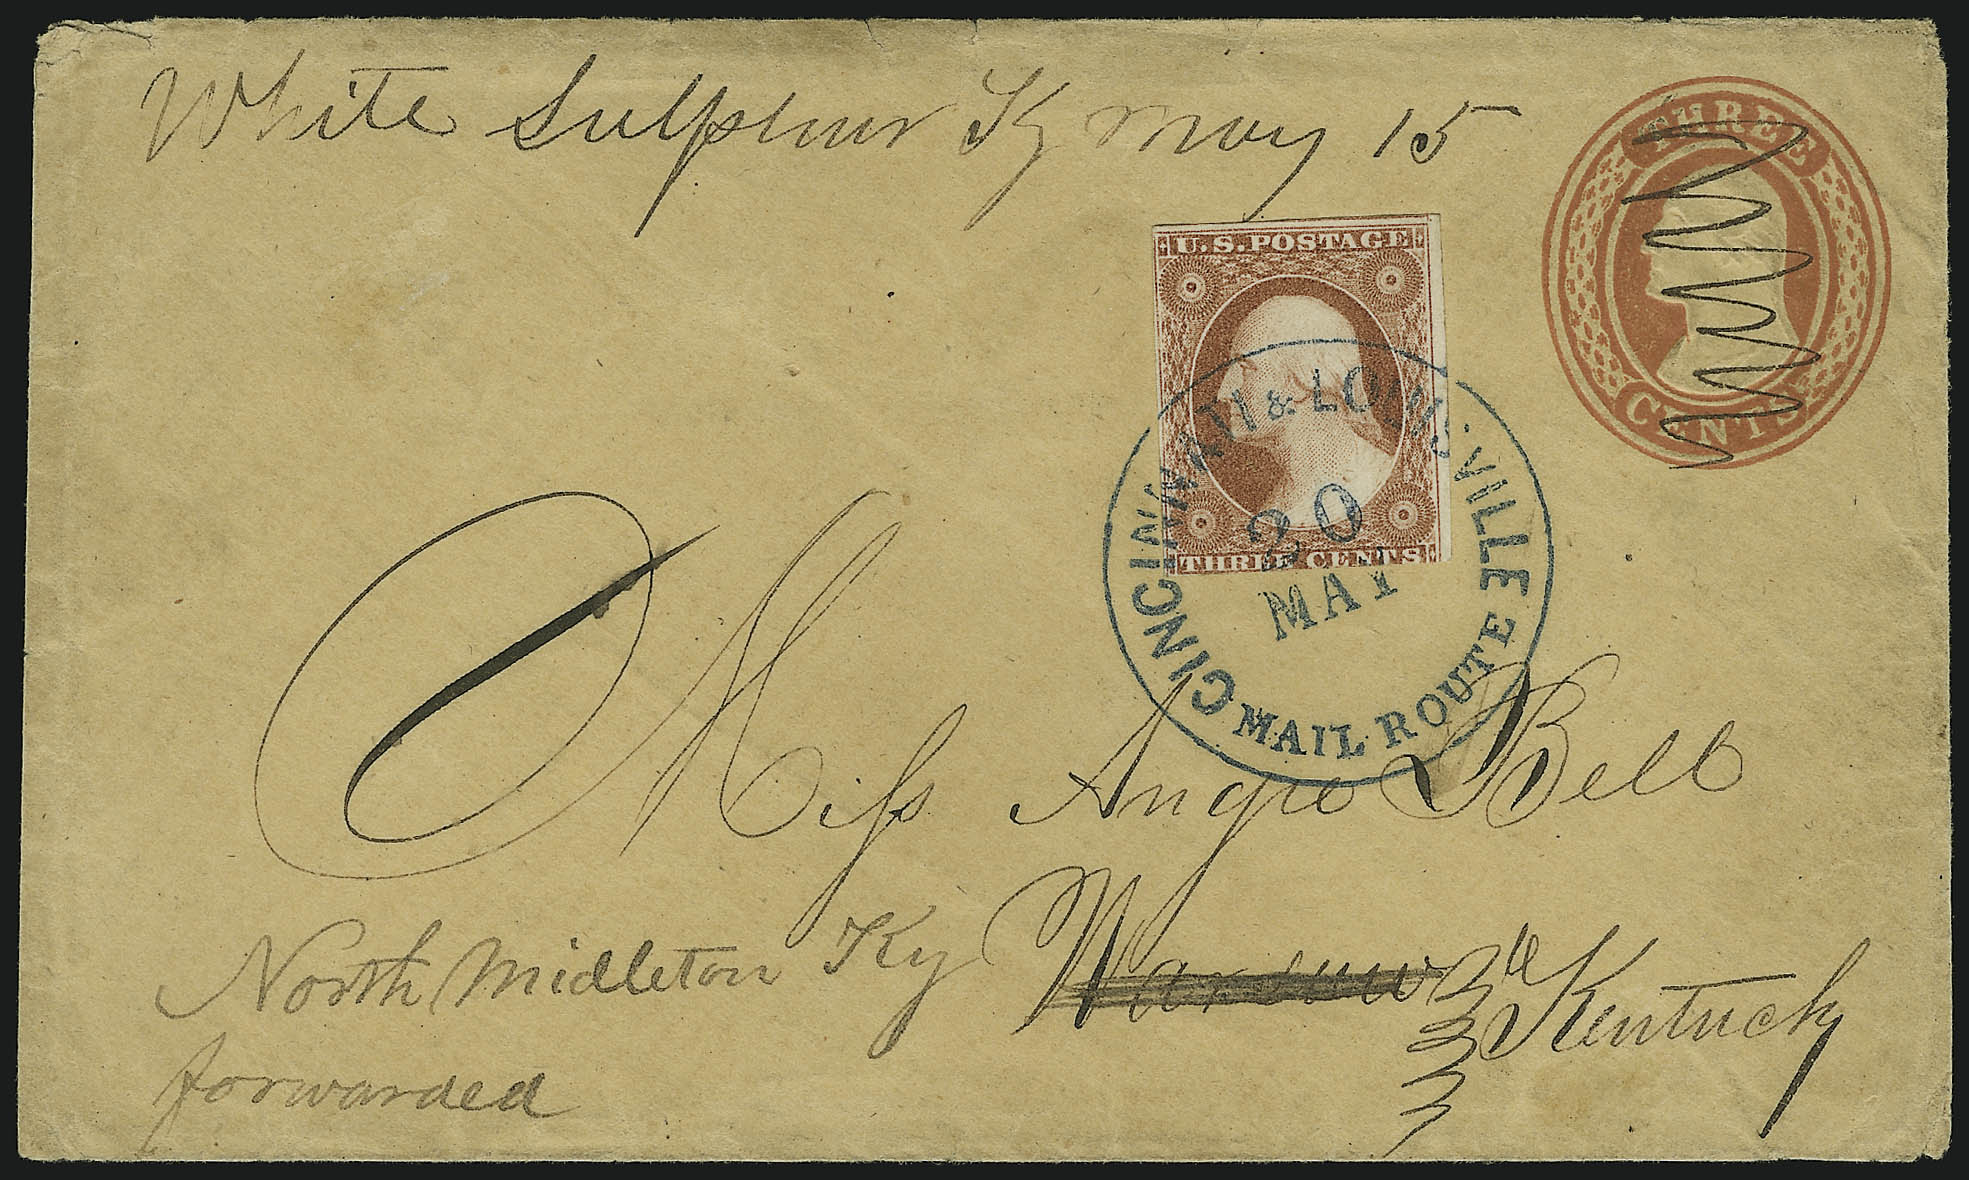 White Sulphur Ky May 15
THREE
CENTS
U.S. POSTAGE
THREE CENTS
CINCINNATI & LOUISVILLE
20
MAY
MAIL ROUTE
Miss Angie Bell
Warsaw
Kentucky
North Middleton Ky
forwarded